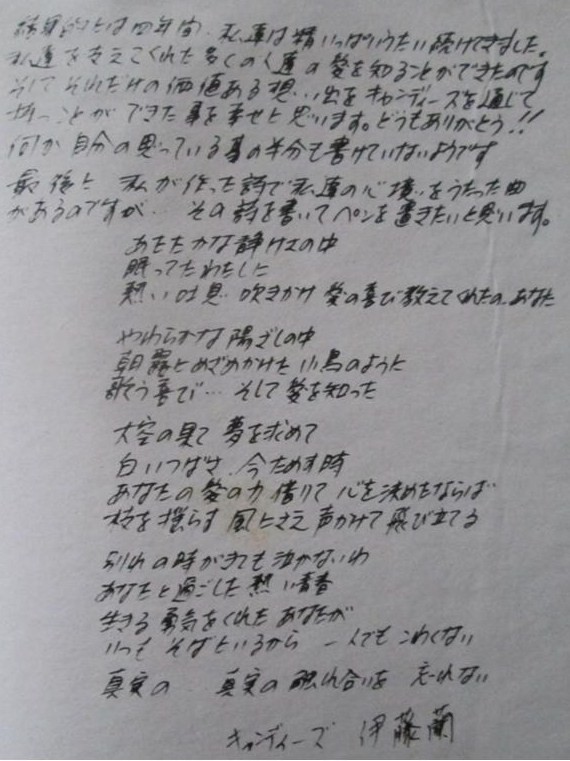 結果的には四年間、私達は精いっぱいうたい続けてきました。
私達を支えてくれた多くの人達の愛を知ることができたのです
そして それだけの価値ある想い出をキャンディーズを通じて
持つことが できた事を幸せと思います。どうもありがとう!!
何か自分の思っている事の半分も書けていないようです
最後に 私が作った詩で私達の心境をうたった曲
があるのですが… その詩を書いてペンを置きたいと思います。
あたたかな静けさの中
眠ってたわたしに
熱い吐息 吹きかけ 愛の喜び教えてくれたの あなた
やわらかな陽ざしの中
朝露にめざめかけた小鳥のように
歌う喜び… そして愛を知った
大空の果て 夢を求めて
白いつばさ 今ためす時
あなたの愛の力 借りて 心を決めたならば
枝を揺らす 風にさえ 声かけて 飛び立てる
別れの時がきても泣かないわ
あなたと過ごした熱い青春
生きる勇気をくれた あなたが
いつも そばにいるから 一人でも こわくない
真実の 真実の触れ合いを 忘れない
キャンディーズ 伊藤蘭